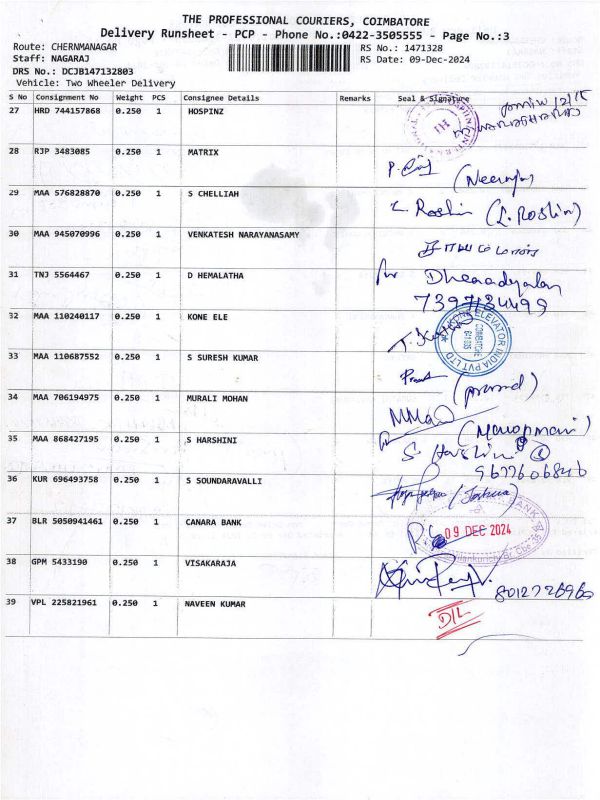 THE PROFESSIONAL COURIERS, COIMBATORE
Delivery Runsheet - PCP - Phone No.:0422-3505555 - Page No.:3
Route: CHERNMANAGAR
RS No.: 1471328
Staff: NAGARAJ
RS Date: 09-Dec-2024
DRS No.: DCJB147132803
Vehicle: Two Wheeler Delivery
S No Consignment No Weight PCS Consignee Details Remarks Seal & Signature
27 HRD 744157868 0.250 1 HOSPINZ
28 RJP 3483085 0.250 1 MATRIX
29 MAA 576828870 0.250 1 S CHELLIAH
L. Roshin (L. Roshin)
30 MAA 945070996 0.250 1 VENKATESH NARAYANASAMY
31 TNJ 5564467 0.250 1 D HEMALATHA
7397134499
32 MAA 110240117 0.250 1 KONE ELE
KONE ELEVATOR INDIA PVT LTD
COIMBATORE
33 MAA 110687552 0.250 1 S SURESH KUMAR
34 MAA 706194975 0.250 1 MURALI MOHAN
35 MAA 868427195 0.250 1 S HARSHINI
S Harshini
36 KUR 696493758 0.250 1 S SOUNDARAVALLI
(Joshua)
37 BLR 5050941461 0.250 1 CANARA BANK
BANK
09 DEC 2024
38 GPM 5433190 0.250 1 VISAKARAJA
39 VPL 225821961 0.250 1 NAVEEN KUMAR
D/L